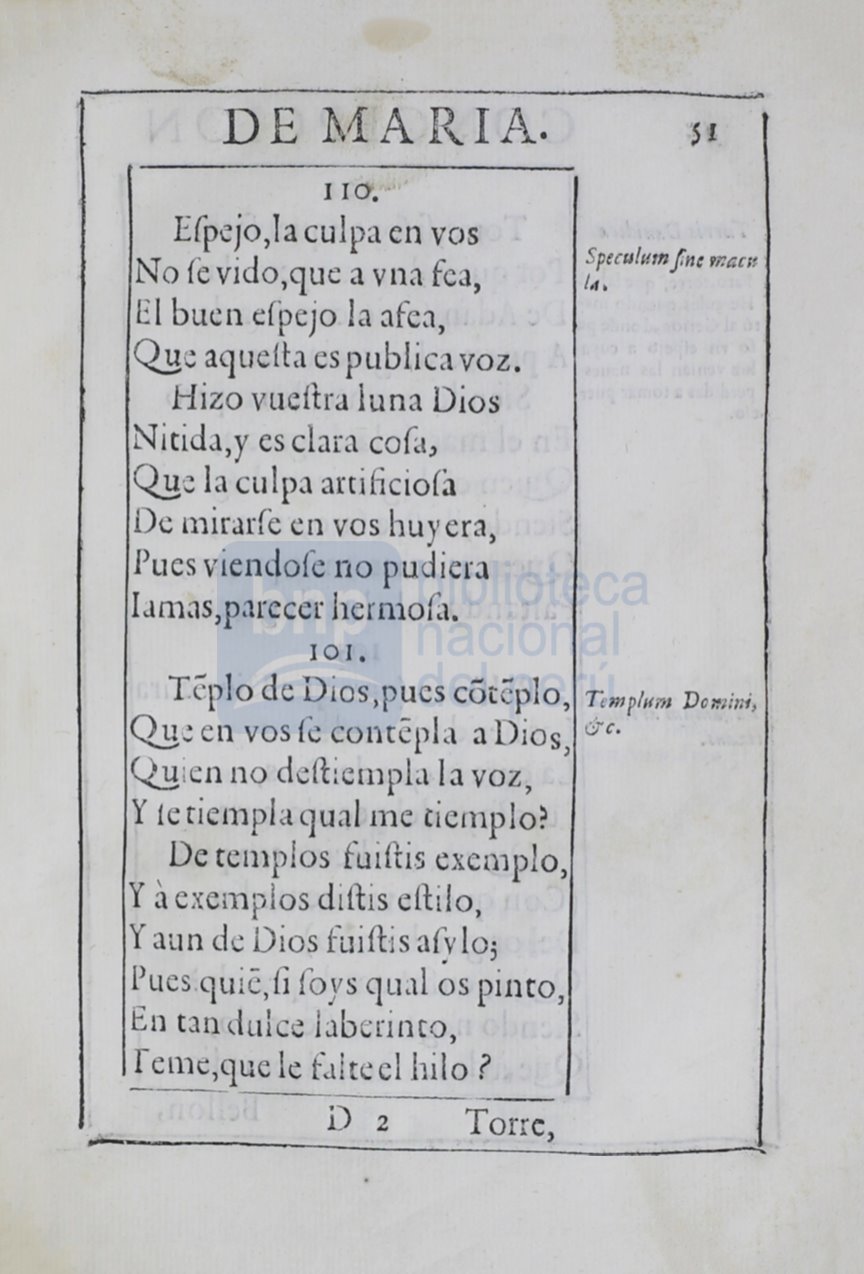 DE MARIA.
51
110.
Eſpejo,la culpa en vos
No ſe vido,que a vna fea,
El buen eſpejo la afea,
Que aqueſta es publica voz.
Hizo vueſtra luna Dios
Nitida,y es clara coſa,
Que la culpa artificioſa
De mirarſe en vos huyera,
Pues viendoſe no pudiera
Iamas,parecer hermoſa.
Speculum ſine macu
la.
101.
Tẽplo de Dios,pues cõtẽplo,
Que en vos ſe contẽpla a Dios,
Quien no deſtiempla la voz,
Y ſe tiempla qual me tiemplo?
De templos fuiſtis exemplo,
Y à exemplos diſtis eſtilo,
Y aun de Dios fuiſtis aſylo;
Pues quiẽ,ſi ſoys qual os pinto,
En tan dulce laberinto,
Teme,que le falte el hilo ?
Templum Domini,
&c.
D 2 Torre,
bnp biblioteca
nacional
del perú